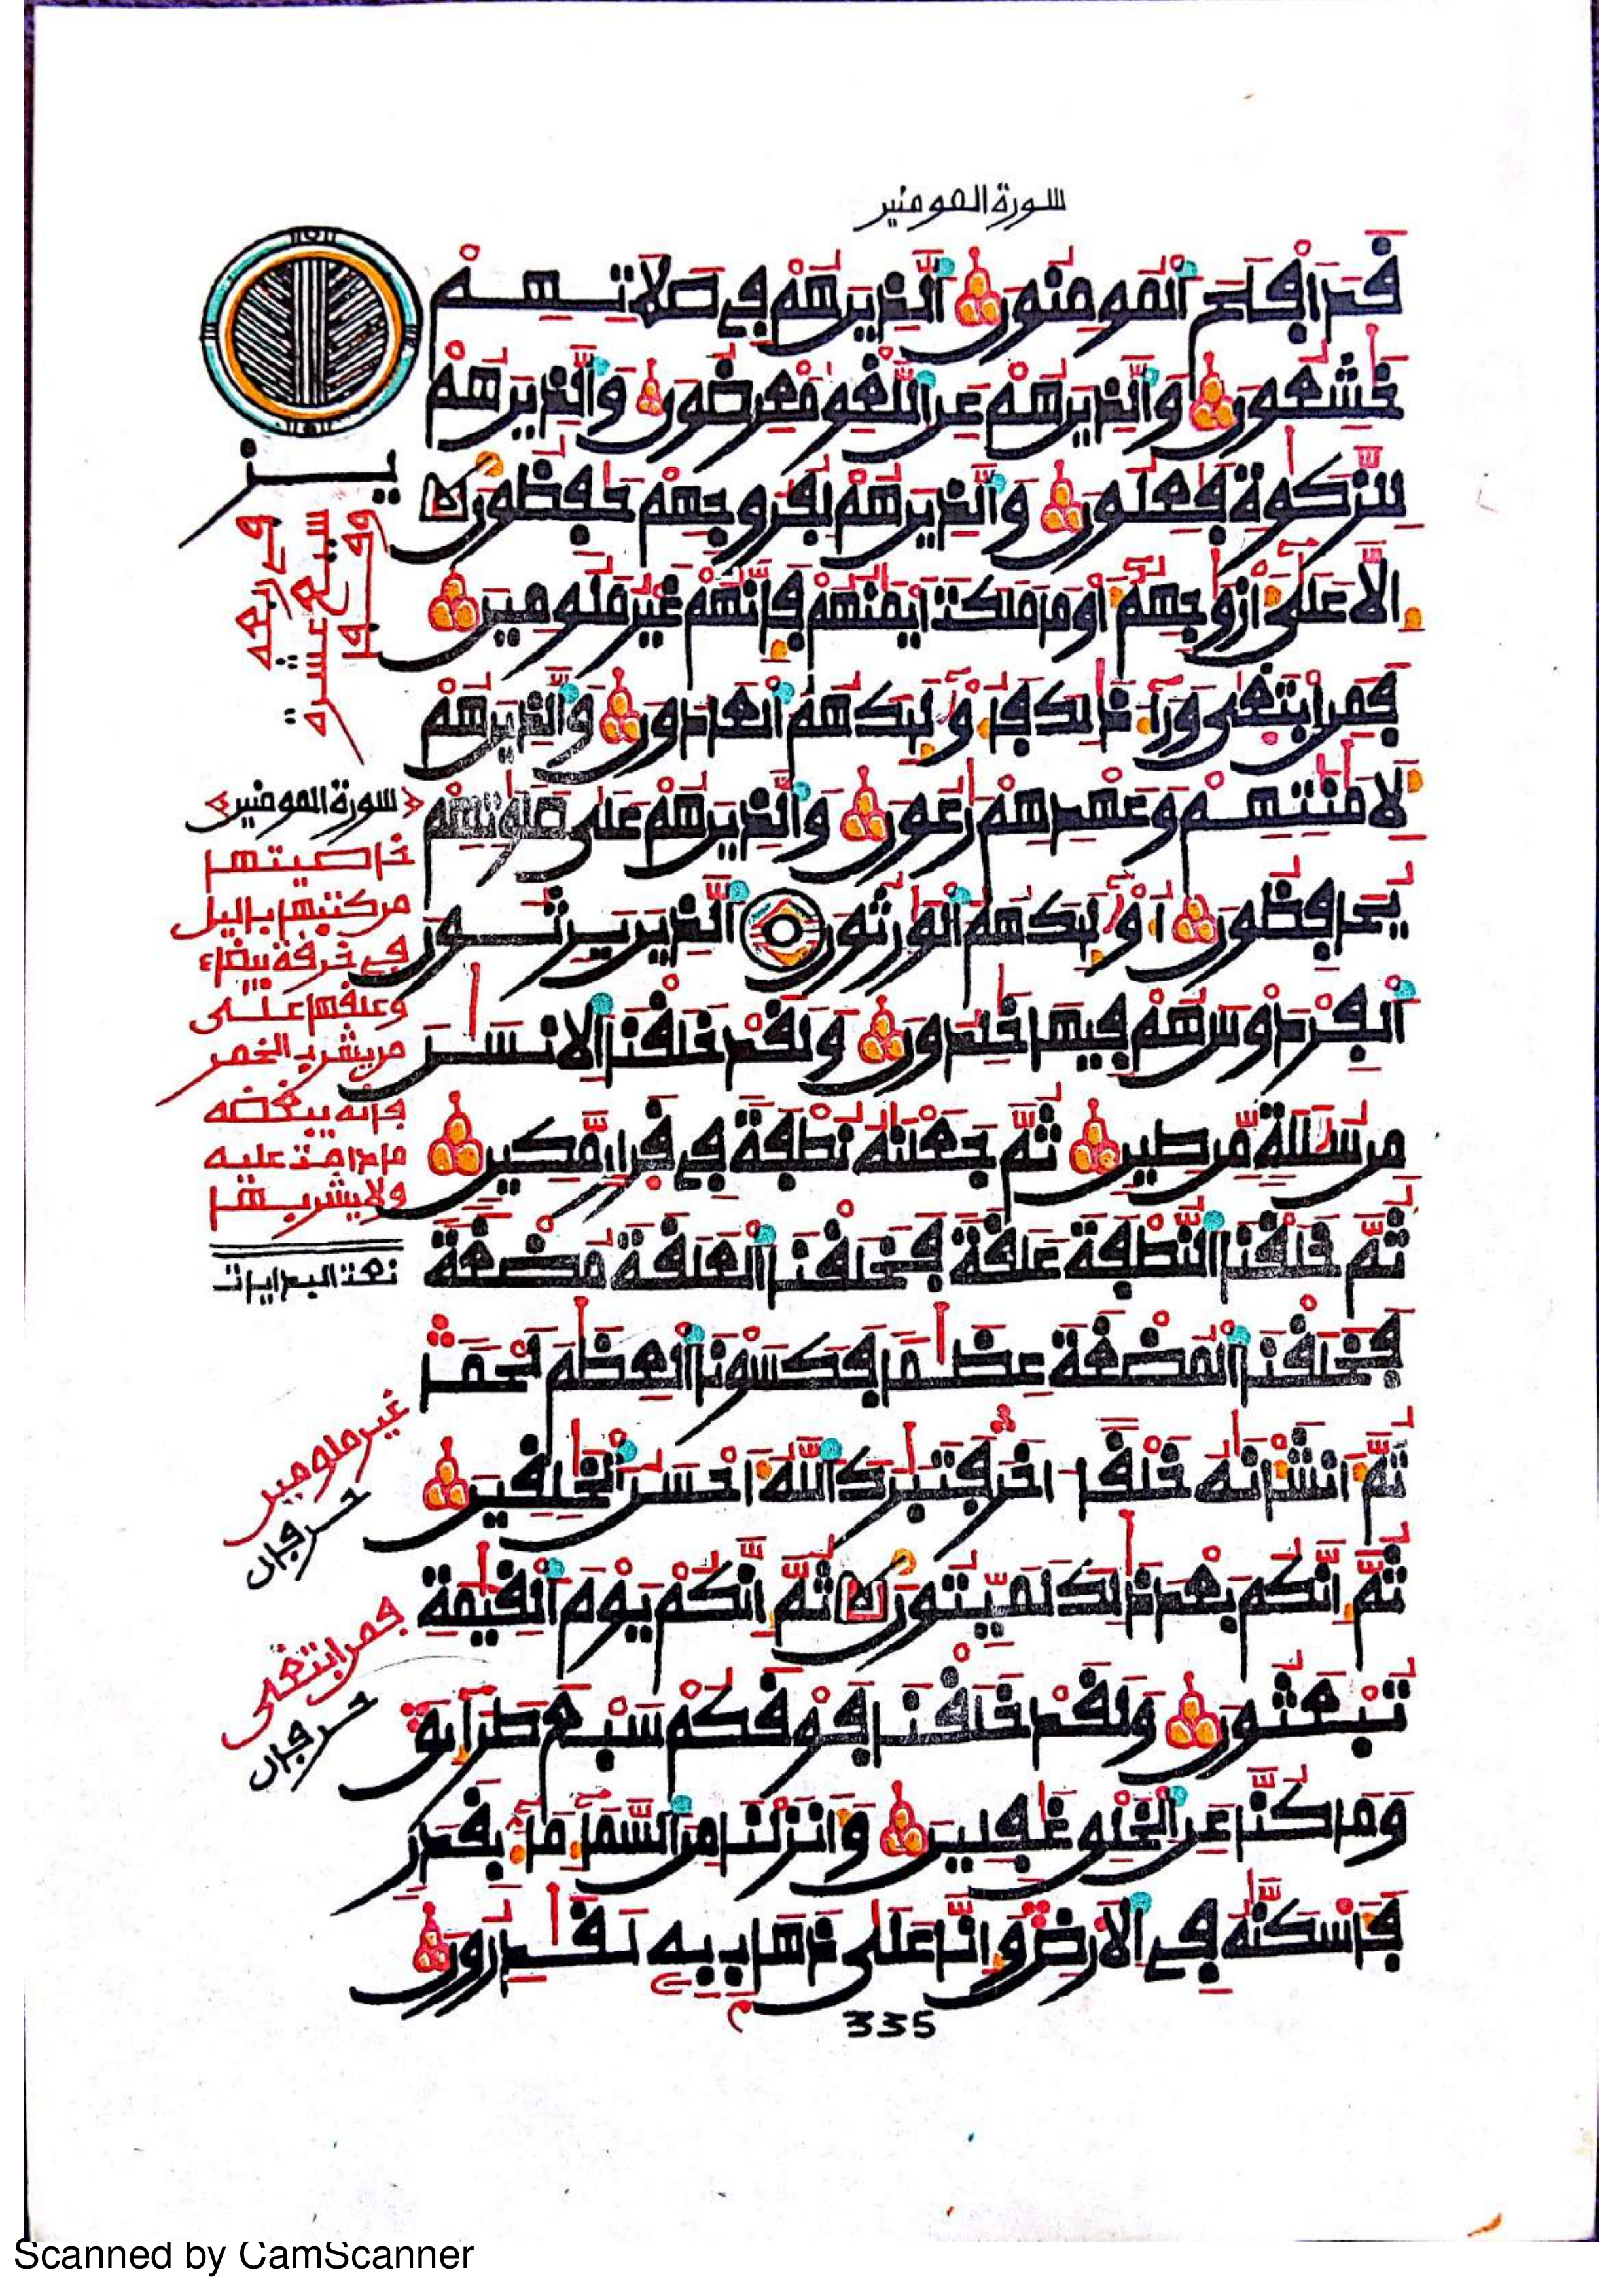 سورة المومنين
قد افلح المومنون الذين هم في صلاتهم
خشعون والذين هم عن اللغو معرضون والذين هم
للزكوة فعلون والذين هم لفروجهم حفظون
الا على ازوجهم او ما ملكت ايمنهم فانهم غير ملومين
فمن ابتغى ورا ذلك فاوليك هم العادون والذين هم
لامنتهم وعهدهم رعون والذين هم على صلوتهم
يحافظون اوليك هم الوارثون الذين يرثون
الفردوس هم فيها خلدون ولقد خلقنا الانسن
من سللة من طين ثم جعلنه نطفة في قرار مكين
ثم خلقنا النطفة علقة فخلقنا العلقة مضغة
فخلقنا المضغة عظما فكسونا العظم لحما
ثم انشانه خلقا اخر فتبرك الله احسن الخلقين
ثم انكم بعد ذلك لميتون ثم انكم يوم القيمة
تبعثون ولقد خلقنا فوقكم سبع طرايق
وما كنا عن الخلق غفلين وانزلنا من السما ما بقدر
فاسكنه في الارض وانا على ذهاب به لقدرون
335
سورة المومنين
خاصيتها
من كتبها باليل
في خرقة بيضاء
وعلقها على
من يشرب الخمر
فانه يبغضه
ما دامت عليه
ولا يشربها
نعت البدايات
غير ملومين
حرفان
فمن ابتغى
حرفان
Scanned by CamScanner